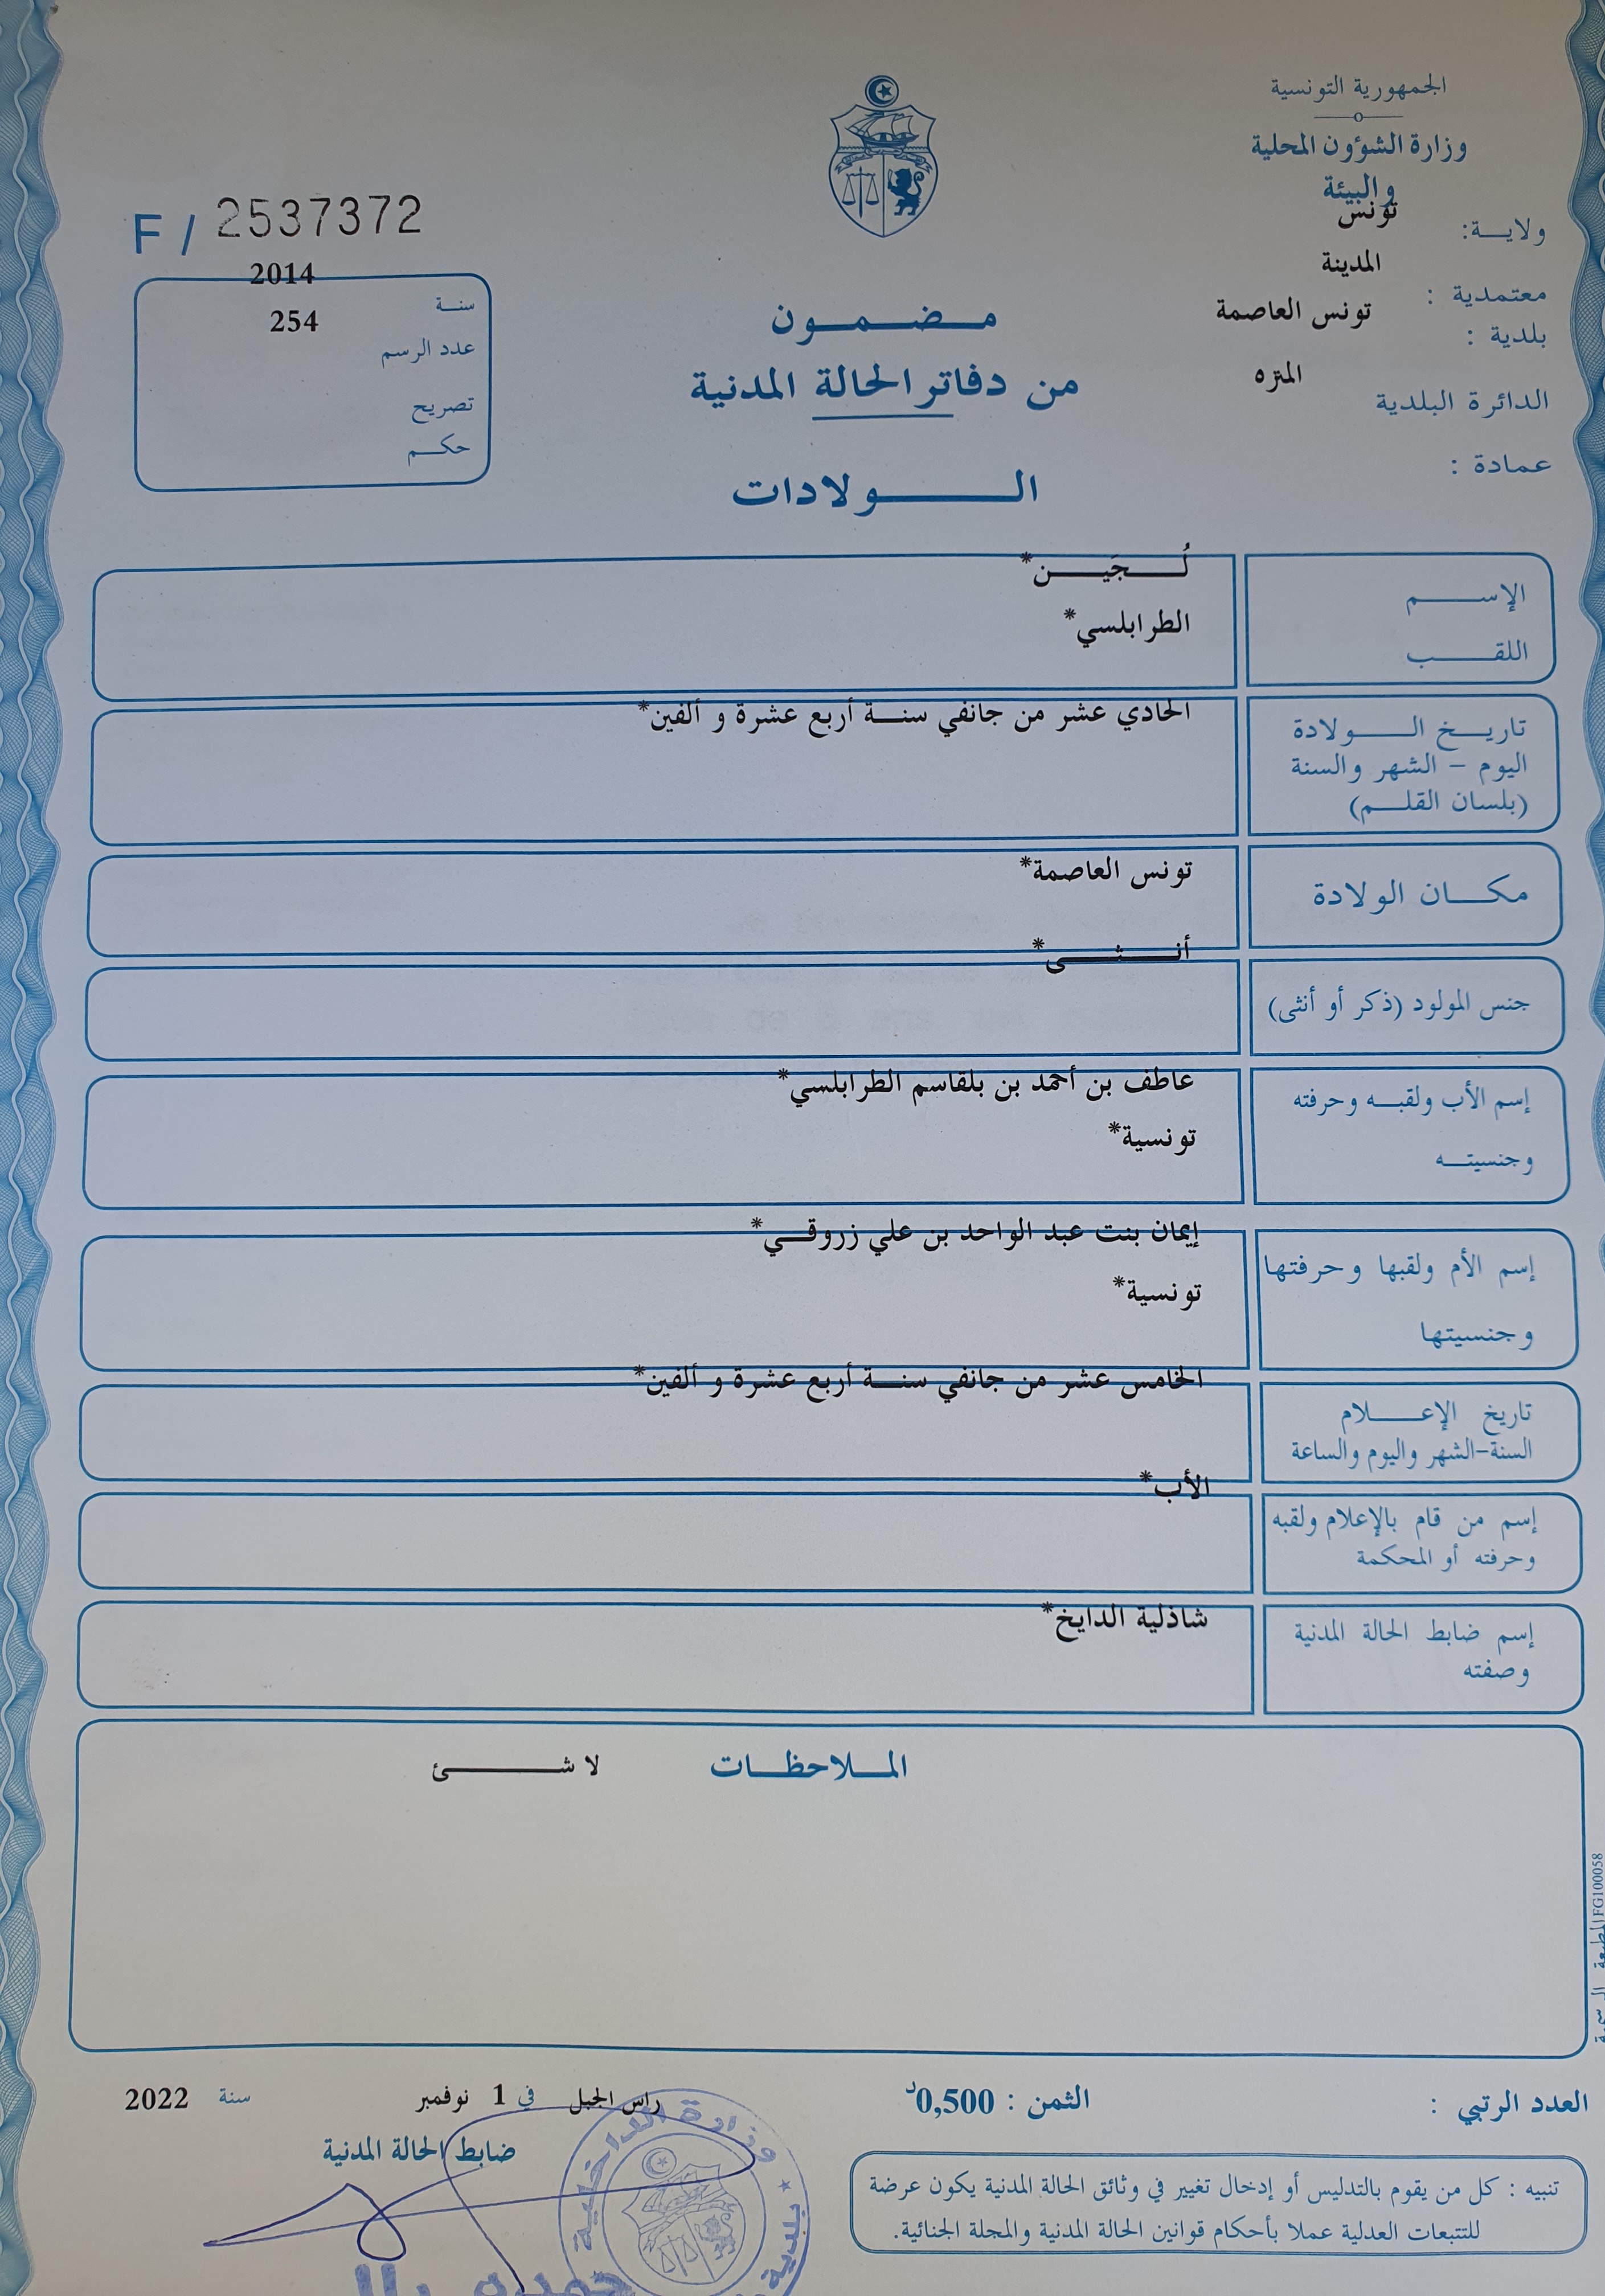 الجمهورية التونسية
وزارة الشؤون المحلية
والبيئة
ولايـــة: تونس
معتمدية : المدينة
بلدية : تونس العاصمة
الدائرة البلدية المنزه
عمادة :
F / 2537372
سنـة 2014
عدد الرسم 254
تصريح
حكـــم
مـضـمـون
من دفاتر الحالة المدنية
الـــولادات
الإســـم لُــجَيــن*
اللقـــب الطرابلسي*
تاريـخ الـــولادة
اليوم – الشهر والسنة
(بلسان القلـــم)
الحادي عشر من جانفي سنـــة أربع عشرة و ألفين*
مكـــان الولادة تونس العاصمة*
جنس المولود (ذكر أو أنثى) أنـــثـــى*
إسم الأب ولقبـــه وحرفته
وجنسيتـــه
عاطف بن أحمد بن بلقاسم الطرابلسي*
تونسية*
إسم الأم ولقبها وحرفتها
وجنسيتها
إيمان بنت عبد الواحد بن علي زروقـــي*
تونسية*
تاريخ الإعـــلام
السنة-الشهر واليوم والساعة
الخامس عشر من جانفي سنـــة أربع عشرة و ألفين*
إسم من قام بالإعلام ولقبه
وحرفته أو المحكمة
الأب*
إسم ضابط الحالة المدنية
وصفته
شاذلية الدايخ*
المـــلاحظـــات لا شـــــئ
FG100058 المطبعة الرسمية
العدد الرتبي :
الثمن : 0,500د
راس الجبل في 1 نوفمبر سنة 2022
ضابط الحالة المدنية
وزارة الداخلية
بلدية
تنبيه : كل من يقوم بالتدليس أو إدخال تغيير في وثائق الحالة المدنية يكون عرضة
للتتبعات العدلية عملا بأحكام قوانين الحالة المدنية والمجلة الجنائية.